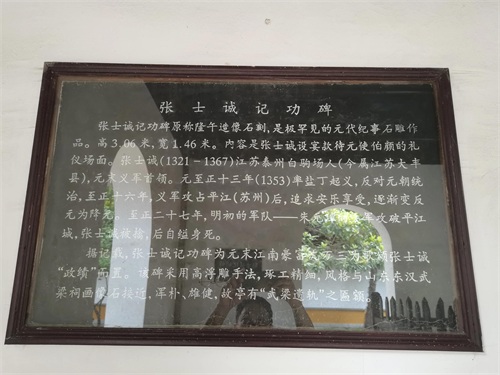 张士诚记功碑
张士诚记功碑原称隆午造像石刻,是极罕见的元代纪事石雕作
品。高3.06米,宽1.46米。内容是张士诚设宴款待元使伯颜的礼
仪场面。张士诚(1321-1367)江苏泰州白驹场人(今属江苏大丰
县),元末义军首领。元至正十三年(1353)率盐丁起义,反对元朝统
治,至正十六年,义军攻占平江(苏州)后,追求安乐享受,逐渐变反
元为降元。至正二十七年,明初的军队——朱元 军攻破平江
城,张士诚被擒,后自缢身死。
据记载,张士诚记功碑为元末江南豪富沈万三为歌颂张士诚
“政绩”而置。该碑采用高浮雕手法,琢工精细,风格与山东东汉武
梁祠画像石接近,浑朴、雄健,故亭有“武梁遗轨”之匾额。